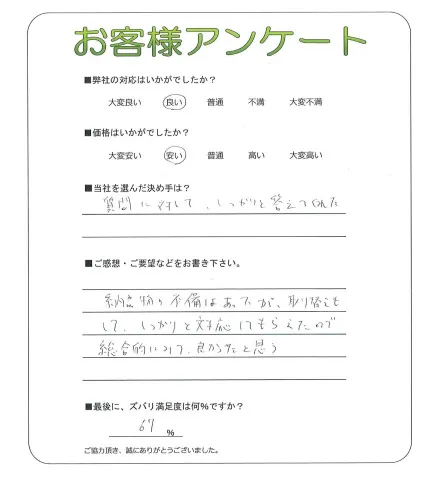 お客様アンケート
■弊社の対応はいかがでしたか?
大変良い 良い 普通 不満 大変不満
■価格はいかがでしたか?
大変安い 安い 普通 高い 大変高い
■当社を選んだ決め手は?
質問に対して、しっかりと答えてくれた
■ご感想・ご要望などをお書き下さい。
納品物の不備はあったが、取り替えも
して、しっかりと対応してもらえたので
総合的にいって、良かったと思う
■最後に、ズバリ満足度は何%ですか?
67 %
ご協力頂き、誠にありがとうございました。